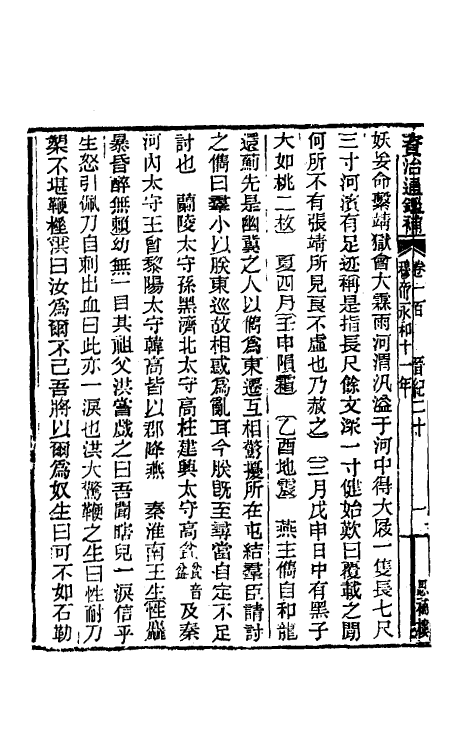 資治通鑑補 卷一百 晉紀二十 穆帝永和十一年 一 思補樓
妖妄命繫靖獄會大霖雨河渭汎溢于河中得大屐一隻長七尺
三寸河濱有足迹稱是指長尺餘文深一寸健始歎曰覆載之閒
何所不有張靖所見良不虛也乃赦之 三月戊申日中有黑子
大如桃二枚 夏四月壬申隕霜 乙酉地震 燕主儁自和龍
還薊先是幽冀之人以儁爲東遷互相驚擾所在屯結羣臣請討
之儁曰羣小以朕東巡故相惑爲亂耳今朕旣至尋當自定不足
討也 蘭陵太守孫黑濟北太守高柱建興太守高瓫瓫音盆及秦
河內太守王會黎陽太守韓高皆以郡降燕 秦淮南王生性麤
暴昏醉無賴幼無一目其祖父洪嘗戲之曰吾聞瞎兒一淚信乎
生怒引佩刀自刺出血曰此亦一淚也洪大驚鞭之生曰性耐刀
槊不堪鞭棰洪曰汝爲爾不已吾將以爾爲奴生曰可不如石勒